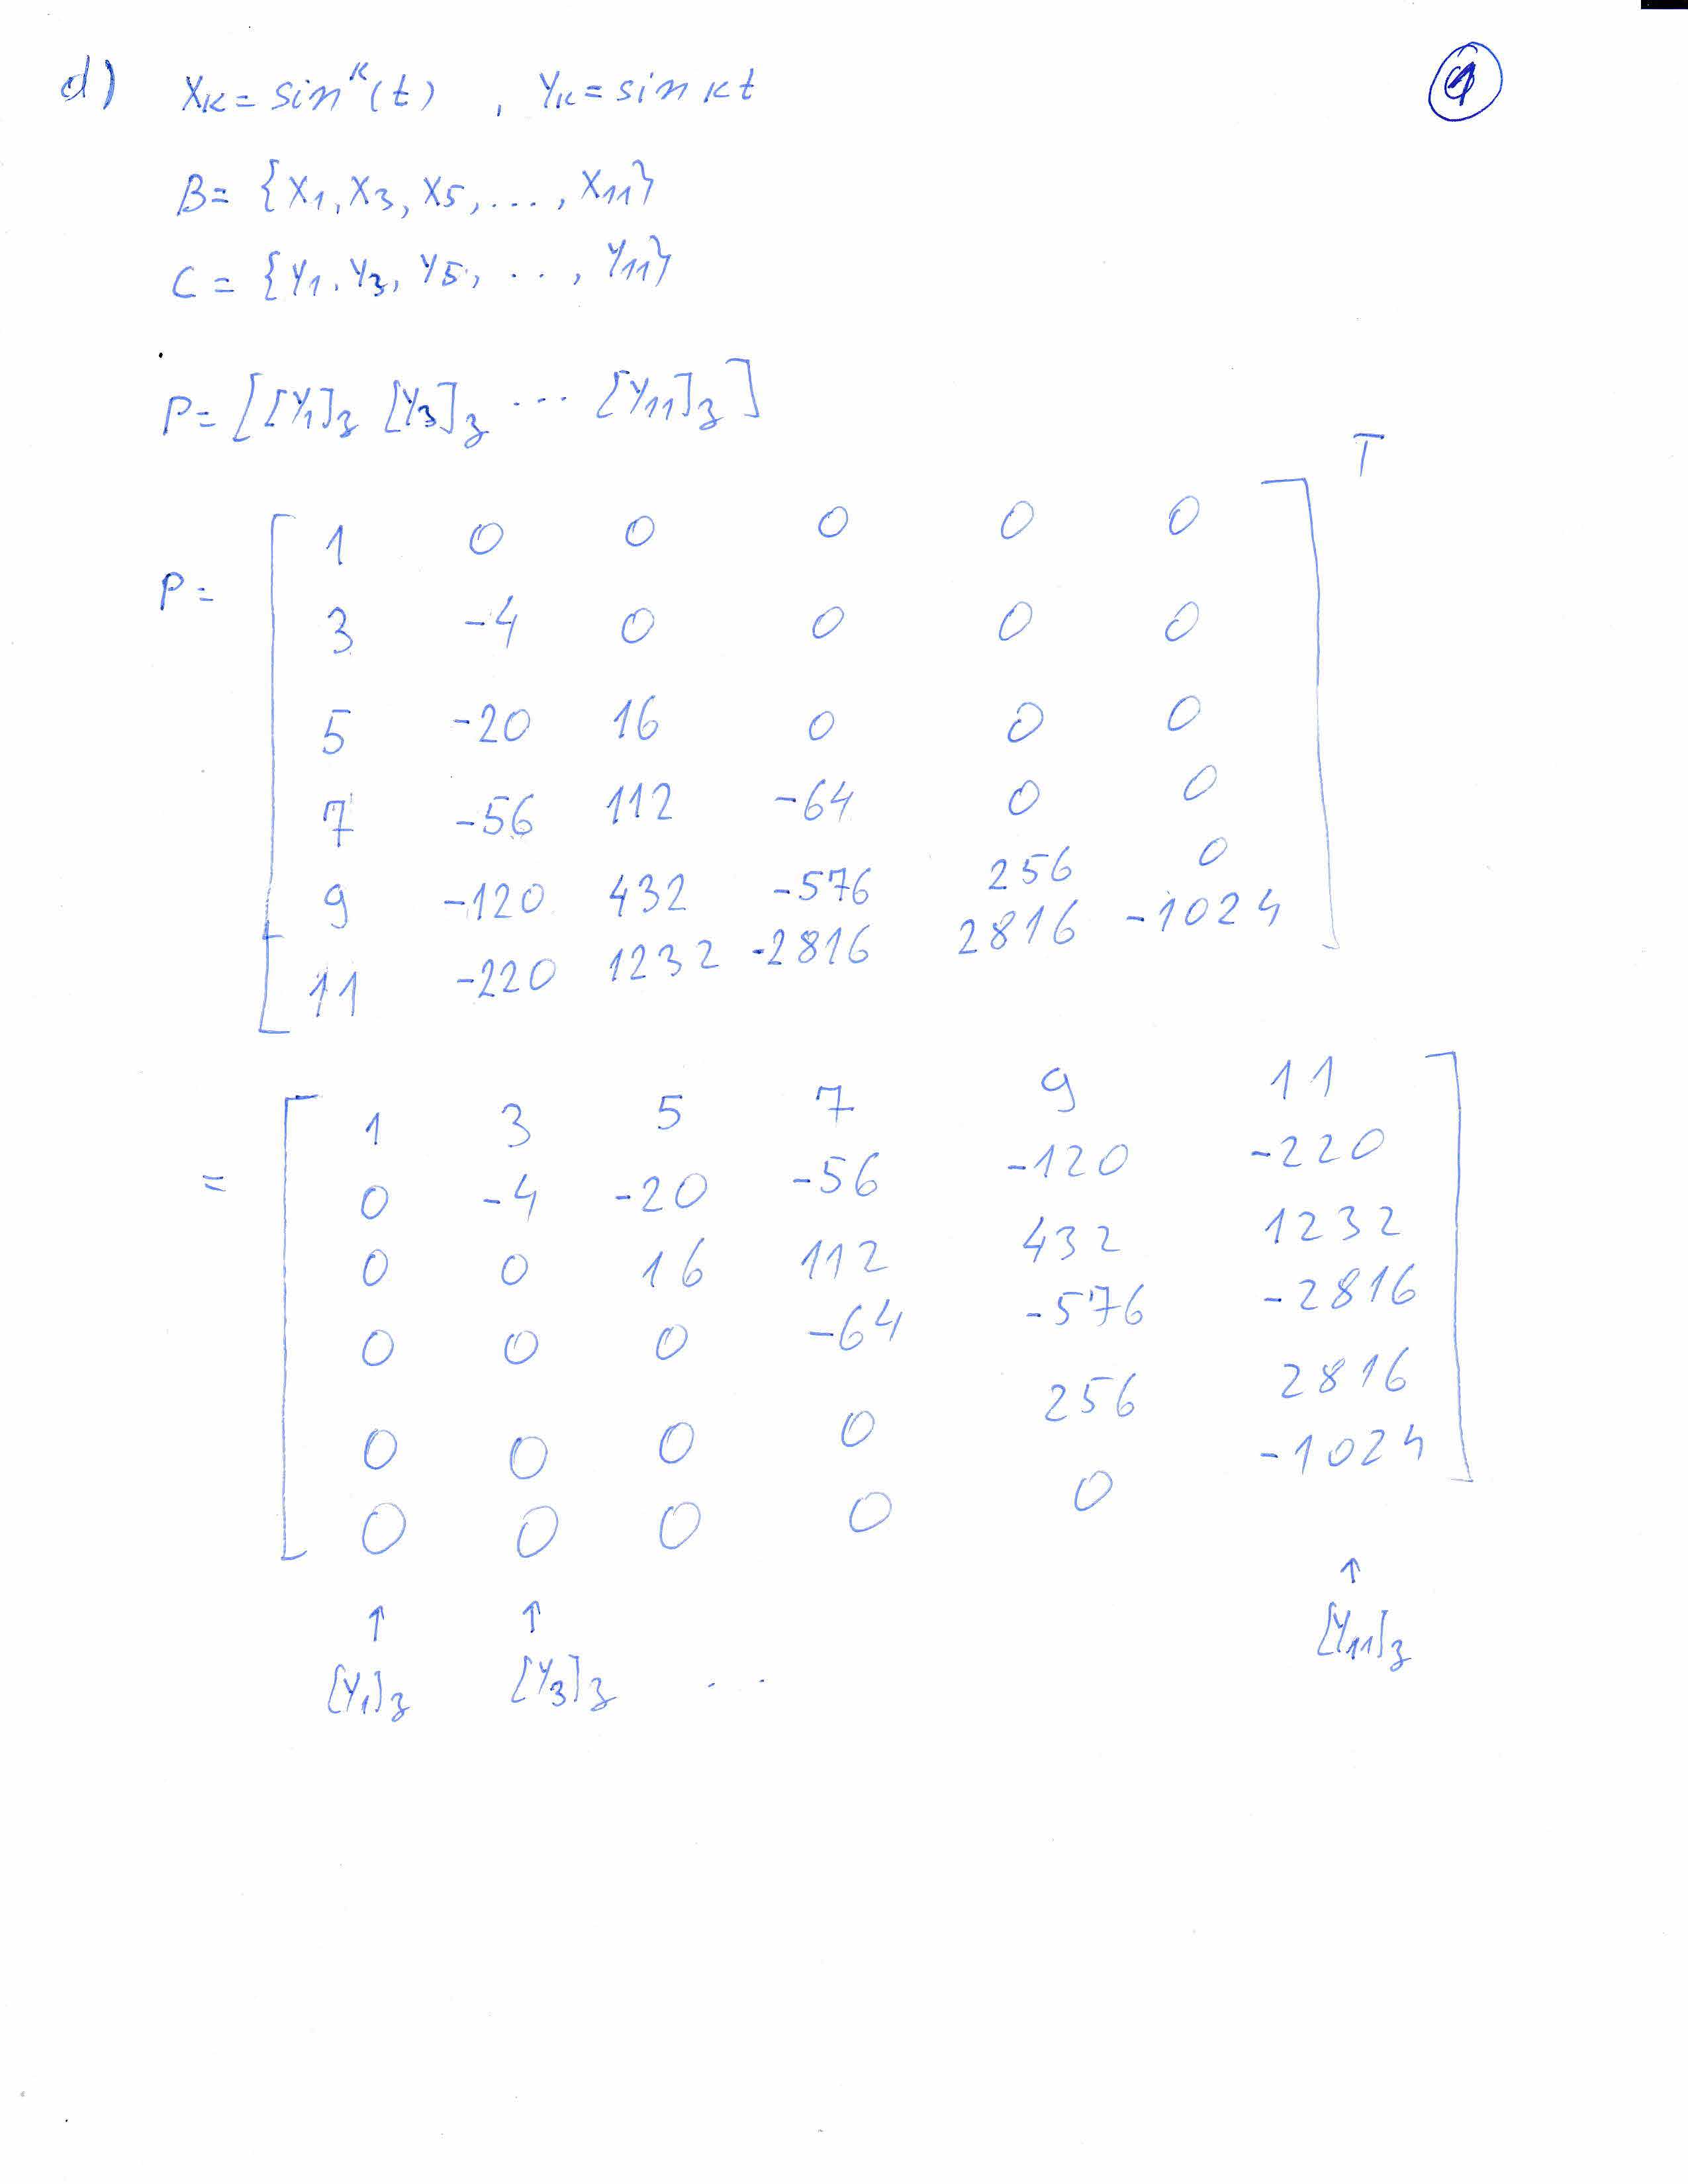 d) Xk = sin^k(t) , Yk = sin kt
B = {X1, X3, X5, ..., X11}
C = {Y1, Y3, Y5, ..., Y11}
P = [[Y1]B [Y3]B ... [Y11]B]
T
1 0 0 0 0 0
P = 3 -4 0 0 0 0
5 -20 16 0 0 0
7 -56 112 -64 0 0
9 -120 432 -576 256 0
11 -220 1232 -2816 2816 -1024
1 3 5 7 9 11
= 0 -4 -20 -56 -120 -220
0 0 16 112 432 1232
0 0 0 -64 -576 -2816
0 0 0 0 256 2816
0 0 0 0 0 -1024
↑ ↑ ↑
[Y1]B [Y3]B ... [Y11]B